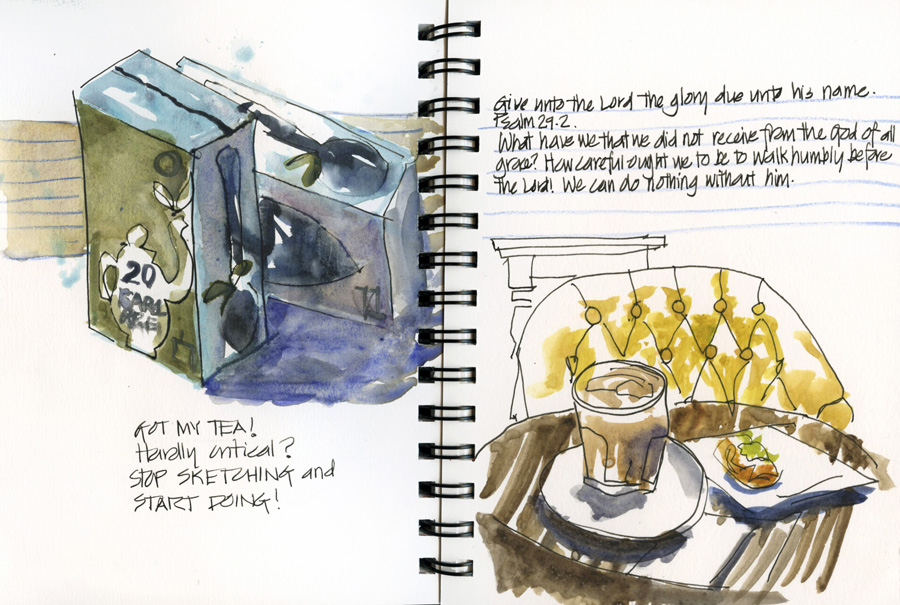 20
EARL
GREY
GOT MY TEA!
Hardly critical?
STOP SKETCHING and
START DOING!
Give unto the Lord the glory due unto his name.
Psalm 29.2.
What have we that we did not receive from the God of all
grace? How careful ought we to be to walk humbly before
the Lord! We can do nothing without him.